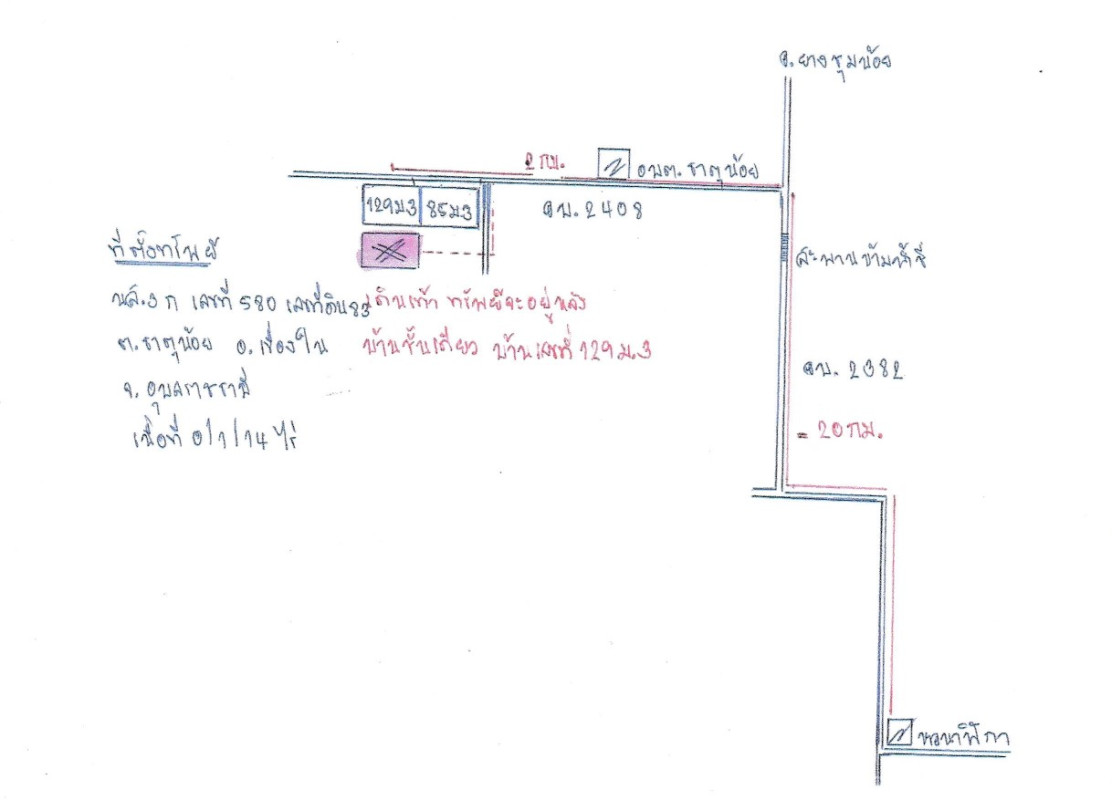 อ.ยางชุมน้อย
2 กม.
อบต.ธาตุน้อย
129ม.3
85ม.3
อบ. 2408
ที่ตั้งทรัพย์
สะพานข้ามน้ำชี
นส.3 ก เลขที่ 580 เลขที่ดิน 83
เดินเท้า ทรัพย์จะอยู่หลัง
ต.ธาตุน้อย อ.เขื่องใน
บ้านชั้นเดียว บ้านเลขที่ 129 ม.3
อบ. 2382
จ.อุบลราชธานี
= 20 กม.
เนื้อที่ 0/1/14 ไร่
หอนาฬิกา